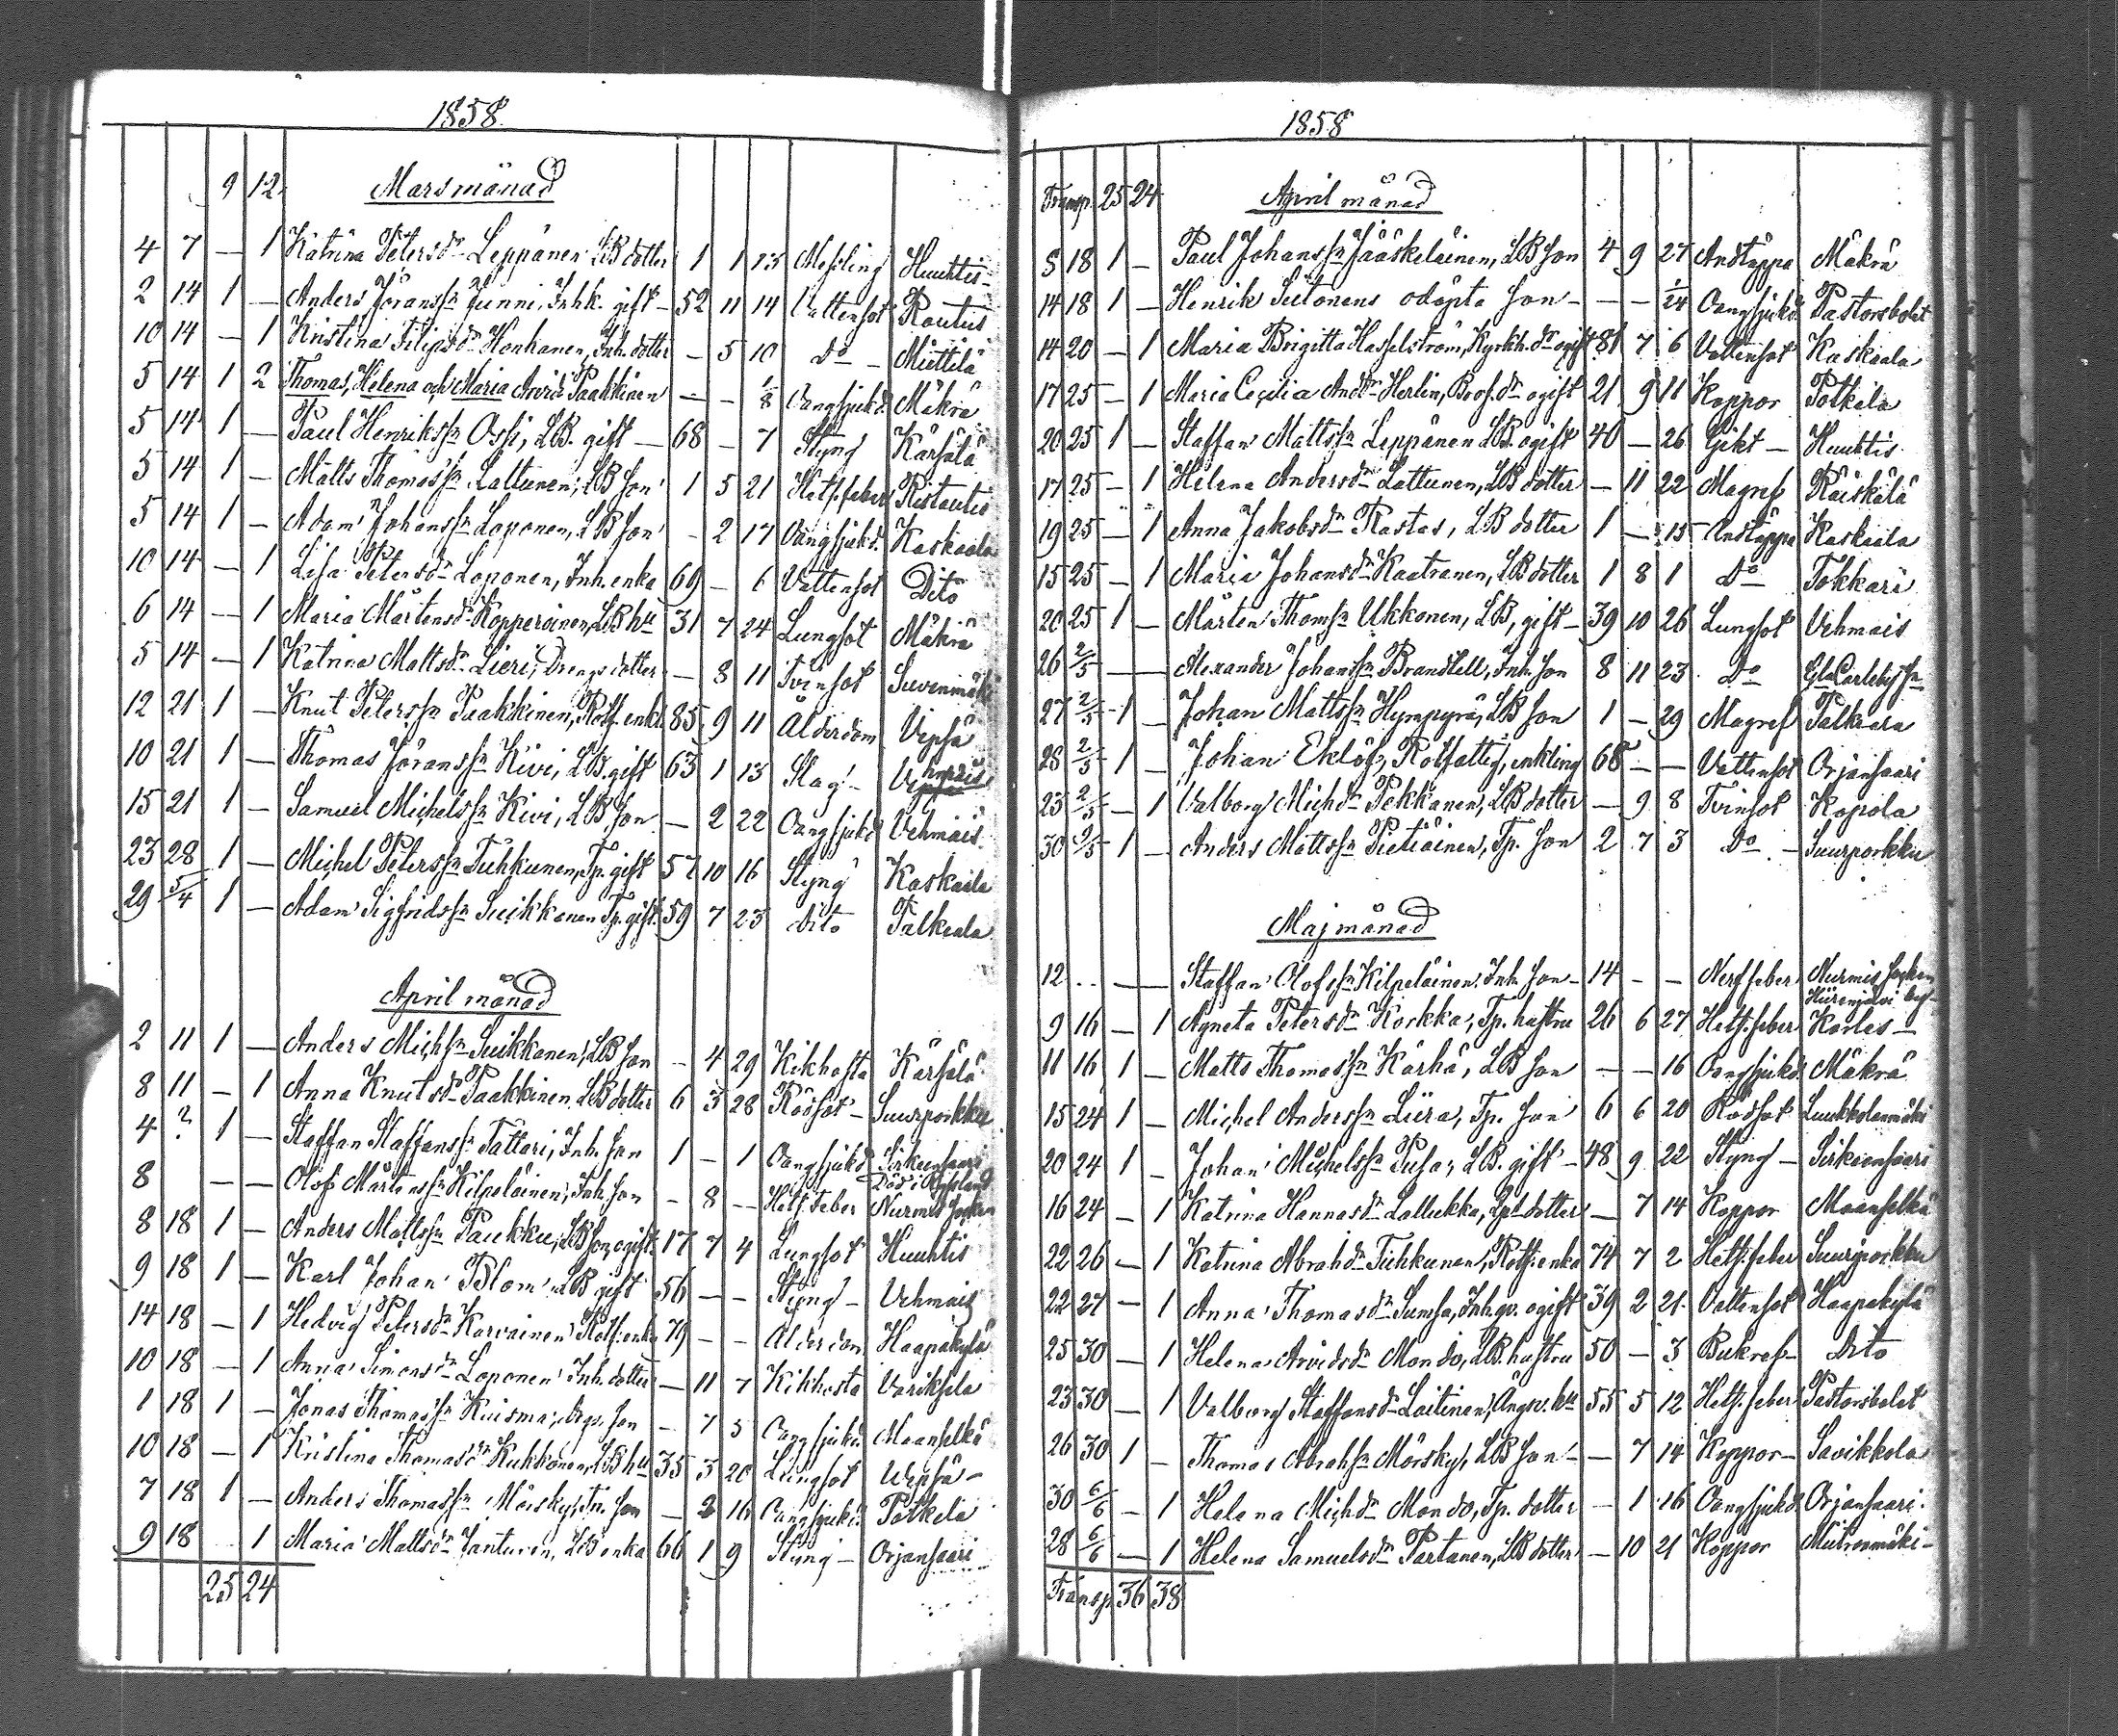 1858.
9 12. Marsmånad
4 7 — 1 Katrina Petersdr Leppänen LB dotter 1 1 13 Messling Huuhtis
2 14 1 — Anders Jöranssn Junni, Inhk. gift — 52 11 14 Vattensot Rautus
10 14 — 1 Kristina Filipsdr Honkanen, Inh. dotter — 5 10 Do — Miettelä
5 14 1 2 Thomas, Helena och Maria Arvidr Paakkinen — — 1/8 Oangsjukd. Mäkrä
5 14 1 — Paul Henrikssn Ossi, LB. gift — 68 — 7 Styng Kärsälä
5 14 1 — Matts Thomassn Lattunen, LB son 1 5 21 Hets. feber Ristautis
5 14 1 — Adam Johanssn Loponen, LB son — 2 17 Oangsjukd. Kaskaala
10 14 — 1 Lisa Petersdr Loponen, Inh. enka 69 — 6 Vattensot Dito
6 14 — 1 Maria Mårtensdr Kopperoinen, LB hu 31 7 24 Lungsot Mäkrä
5 14 — 1 Katrina Mattsdr Lieri, Drengs dotter — 8 11 Tvinsot Suvenmäki
12 21 1 — Knut Peterssn Paakkinen, Rotf. enkl. 85 9 11 Ålderdom Vepsä
10 21 1 — Thomas Jöranssn Kivi, LB. gift 63 1 13 Slag — Vepsä hmais
15 21 1 — Samuel Michelssn Kivi, LB son — 2 22 Oangsjukd Vehmais
23 28 1 — Michel Peterssn Tuhkunen, Tp. gift 57 10 16 Styng Kaskaala
29 5/4 1 — Adam Sigfridssn Suikkanen Tp. gift 59 7 23 dito Palkeala
April månad
2 11 1 — Anders Michsn Suikkanen, LB son — 4 29 Kikhosta Kärsälä
8 11 — 1 Anna Knutsdr Paakkinen LB dotter 6 3 28 Rödsot — Suurporkku
4 ? 1 — Staffan Staffanssn Tattari, Inh. son 1 — 1 Oangsjukd Sirkunsaari
8 — — Olof Mårtenssn Kilpeläinen, Inh. son — 8 — Hets. feber Död i Ryssland Nurmis Socken
8 18 1 — Anders Mattssn Paukku, LB son, ogift 17 7 4 Lungsot Huuhtis
9 18 1 — Karl Johan Blom LB gift 56 — — Styng — Vehmais
14 18 — 1 Hedvig Petersdr Karvainen Rotf. enka 79 — — Ålderdom Haapakylä
10 18 — 1 Anna Simonsdr Loponen Inh. dotter — 11 7 Kikhosta Variksela
1 18 1 — Jonas Thomassn Kuisma, son — 7 5 Oangsjukd. Maanselkä
10 18 — 1 Kristina Thomasdr Kukkonen, LB hu 35 3 20 Lungsot Vepsä —
7 18 1 — Anders Thomassn Mörsky, Tp. son — 2 16 Oangsjukd. Potkela
9 18 1 Maria Mattsdr Jantunen, LB enka 66 1 9 Styng — Orjansaari
25 24
1858
Transp. 25 24 April månad
5 18 1 — Paul Johanssn Jääskeläinen, LB son 4 9 27 Andtäppa Mäkrä
14 18 1 — Henrik Sutonens odöpta son — — — 1/24 Oangsjukd. Pastorsbolet
14 20 — 1 Maria Brigitta Hasselström, Kyrkh. dr ogift 81 7 6 Vattensot Kaskaala
17 25 — 1 Maria Cecilia Anddr Herlin, dr ogift 21 9 11 Koppor Potkela
20 25 1 — Staffan Mattssn Leppänen LB. ogift 40 — 26 Gikt — Huuhtis
17 25 — 1 Helena Andersdr Lattunen, LB dotter — 11 22 Magref Räiskälä
19 25 — 1 Anna Jakobsdr Rastas, LB dotter 1 — 15 Andtäppa Kaskaala
15 25 — 1 Maria Johansdr Kaatranen, LB dotter 1 8 1 Do Tokkari
20 25 1 — Mårten Thomsn Ukkonen, LB, gift — 39 10 26 Lungsot Vehmais
26 2/5 — — Alexander Johanssn Brandtell, Inh. son 8 11 23 Do Gla Carleby Sn
27 2/5 1 — Johan Mattssn Hympyrä, LB son 1 — 29 Magref Palkeala
28 2/5 1 — Johan Eklöf, Rotfattig, enkling 68 — — Vattensot Orjansaari
23 2/5 — 1 Valborg Michdr Pekkanen, LB dotter — 9 8 Tvinsot Kopola
30 2/5 1 — Anders Mattssn Pietiäinen, Tp. son 2 7 3 Do — Suurporkku
Maj månad
12 .. — — Staffan Olofssn Kilpeläinen Inh. son — 14 — — Nerffeber Nurmis Socken
9 16 — 1 Agneta Petersdr Korkka, Tp. hustru 26 6 27 Hets. feber Karlas —
11 16 1 — Matts Thomassn Kärhä, LB son — — 16 Oangsjukd. Mäkrä
15 24 1 — Michel Anderssn Liira, Tp. son 6 6 20 Rödsot Luukkolanmäki
20 24 1 — Johan Michelssn Pusa, LB. gift — 48 9 22 Styng — Sirkiänsaari
16 24 — 1 Katrina Hannasdr Lallukka, dotter — 7 14 Koppor Maanselkä
22 26 — 1 Katrina Abrahdr Tuhkunen, Rotf. enka 74 7 2 Hets. feber Suurporkku
22 27 — 1 Anna Thomasdr Sumsa, Inhqv. ogift 39 2 21 Vattensot Haapakylä
25 30 — 1 Helena Arvidsdr Mondo, LB. hustru 50 — 3 Bukref — dito
23 30 — 1 Valborg Staffansdr Loitinen, hu 55 5 12 Hets. feber Pastorsbolet
26 30 1 — Thomas Abrahsn Mörsky, LB son — — 7 14 Koppor — Savikkola
30 6/6 — 1 Helena Michdr Mondo, Tp. dotter — 1 16 Oangsjukd. Orjansaari.
28 6/6 — 1 Helena Samuelsdr Partanen, LB dotter — 10 21 Koppor
Transp. 36 38